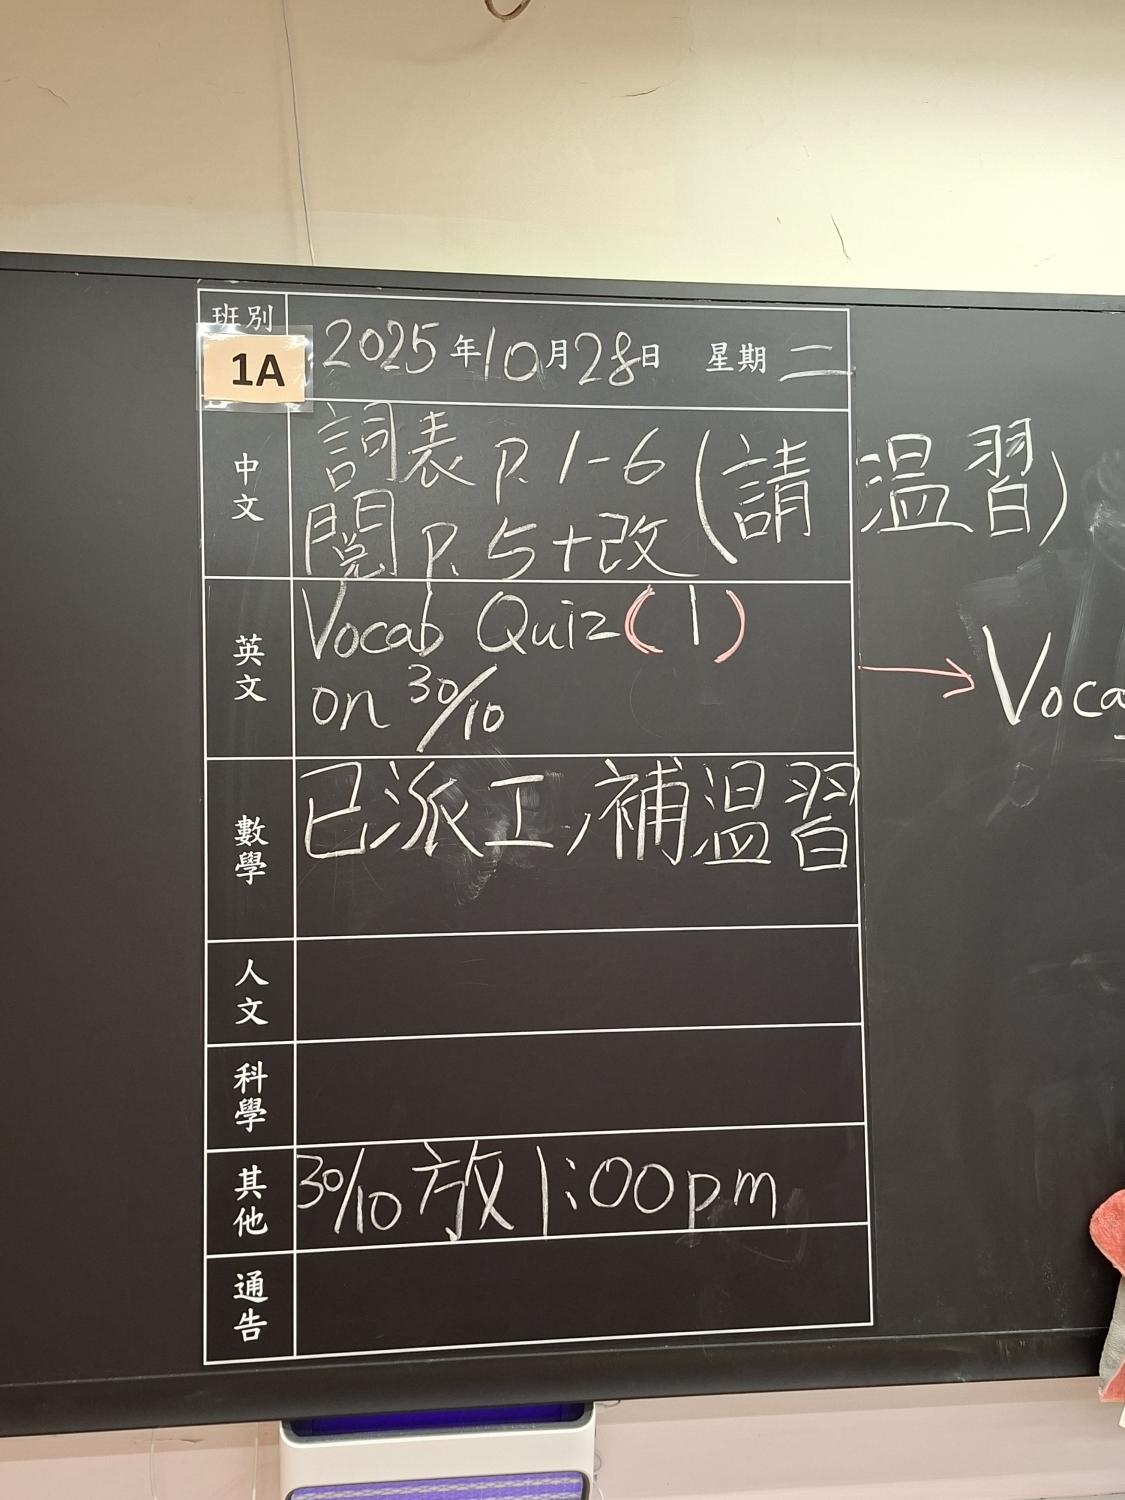 班別
1A
2025年10月28日 星期二
中文
詞表 p. 1-6 (請温習)
閱 p. 5+改
英文
Vocab Quiz (1)
on 30/10
→ Voca
數學
已派工,補温習
人文
科學
其他
30/10 放 1:00pm
通告